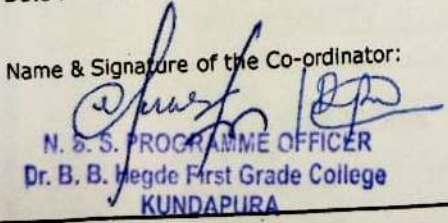 Name & Signature of the Co-ordinator:
N. S. S. PROGRAMME OFFICER
Dr. B. B. Hegde First Grade College
KUNDAPURA